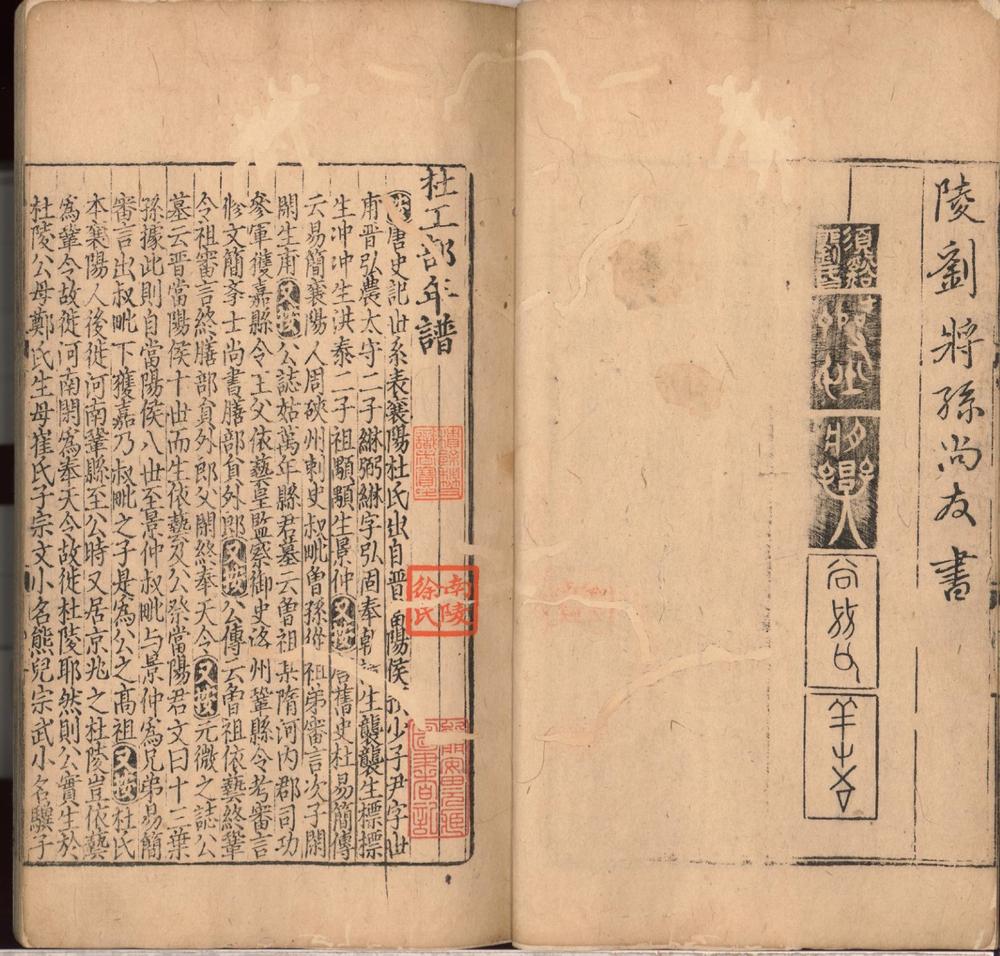 陵劉將孫尚友書
杜工部年譜
唐史記世系表襄陽杜氏出自晉陽侯少子尹字世
甫晉弘農太守二子綝弼綝字弘固奉朝生襲襲生標標
生冲冲生洪泰二子祖顒顒生景仲又按舊史杜易簡傳
云易簡襄陽人周硤州刺史叔毗曾孫祖弟審言次子閑
閑生甫又按公誌姑萬年縣君墓云曾祖某隋河内郡司功
參軍獲嘉縣令王父依藝皇監察御史洛州鞏縣令考審言
修文簡斈士尚書膳部貟外郎又按公傳云曾祖依藝終鞏
令祖審言終膳部貟外郎父閑終奉天令又按元微之誌公
墓云晉當陽侯十世而生依藝及公祭當陽君文曰十三葉
孫據此則自當陽侯八世至景仲叔毗与景仲為兄弟易簡
審言出叔毗下獲嘉乃叔毗之子是為公之髙祖又按杜氏
本襄陽人後徙河南鞏縣至公時又居京兆之杜陵豈依藝
為鞏令故徙河南閑為奉天令故徙杜陵耶然則公實生於
杜陵公母鄭氏生母崔氏子宗文小名熊兒宗武小名驥子
南陵
徐氏